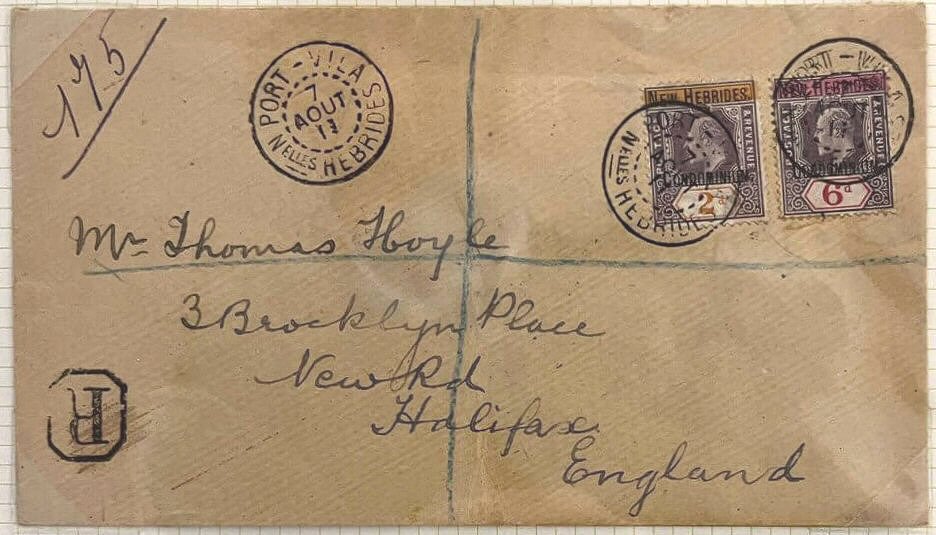 175
PORT-VILA
7
AOUT
11
NELLES HEBRIDES
NEW HEBRIDES.
POSTAGE & REVENUE
CONDOMINIUM.
2d
NELLES HEBRIDES
NEW HEBRIDES.
POSTAGE & REVENUE
CONDOMINIUM.
6d
Mr Thomas Hoyle
3 Brocklyn Place
New Rd
Halifax
England
R